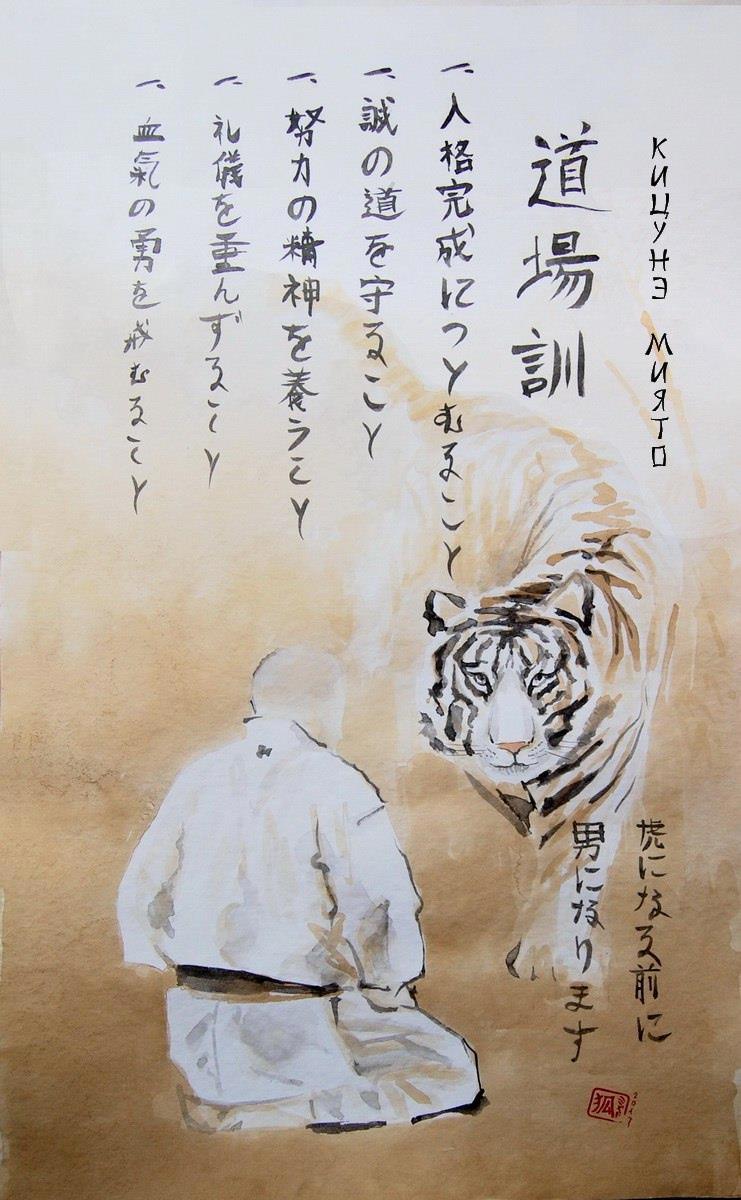 КИЦУНЭ МИЯТО
道場訓
一、人格完成につとむること
一、誠の道を守ること
一、努力の精神を養うこと
一、礼儀を重んずること
一、血氣の勇を戒むること
虎になる前に
男になります
狐
2017